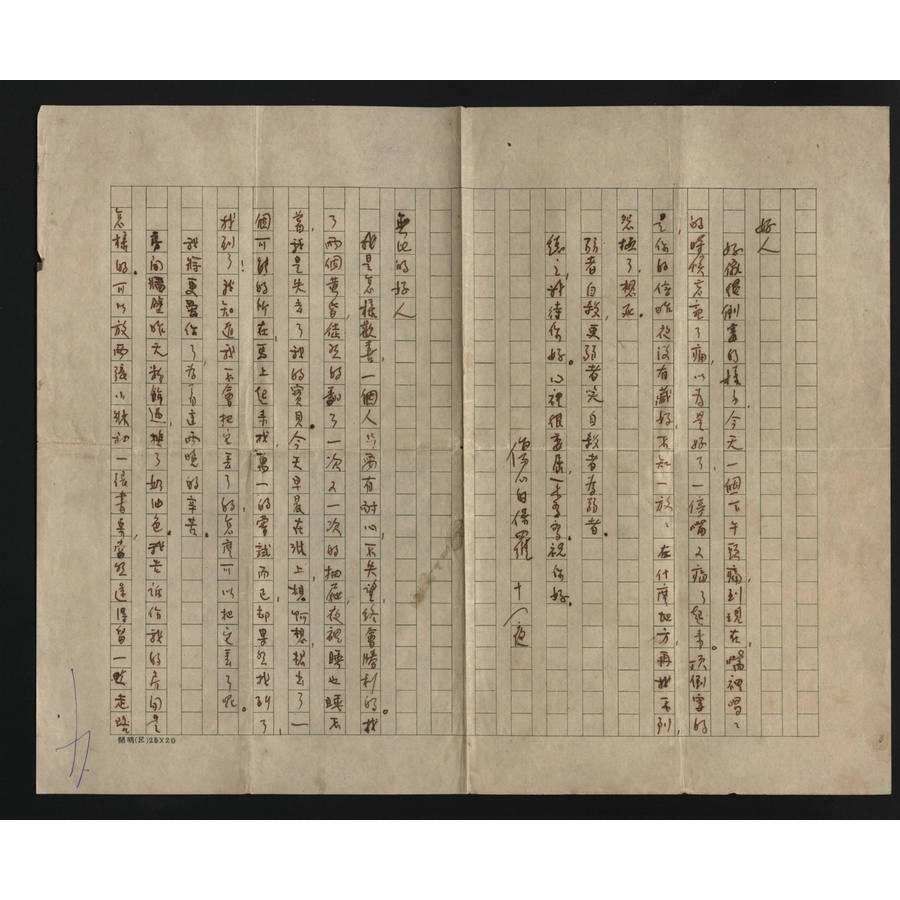 好人
好像很倒霉的樣子，今天一個下午頭痛到現在，嘴裡唱唱
的時候忘記了痛，以為是好了，一停嘴又痛了起來。頂倒霉的
是你的信昨夜沒有藏好，不知一放放在什麼地方，再找不到，
怨極了，想死。
弱者自殺，更弱者完自殺者為弱者。
總之，我待你好。心裡很委屈，不多寫，祝你好。
傷心的保羅 十一夜
無比的好人
我是怎樣歡喜，一個人只要有耐心，不失望，終會勝利的。找
了兩個黃昏，徒然的翻了一次又一次的抽屜，夜裡睡也睡不
當，我是失去了我的寶貝。今天早晨在牀上，想啊想，想出了一
個可能的所在，馬上起來找，萬一的嘗試而已，卻果然找到了，
找到了！我知道我不會把它丟了的，怎麼可以把它丟了呢。
我將更愛你了，為了這兩晚的辛苦。
房間牆壁昨天粉飾過，換了奶油色。我告訴你我的房間是
怎樣的。可以放兩張小牀和一張書桌，當然還得留一點走路
開明(民)25X20